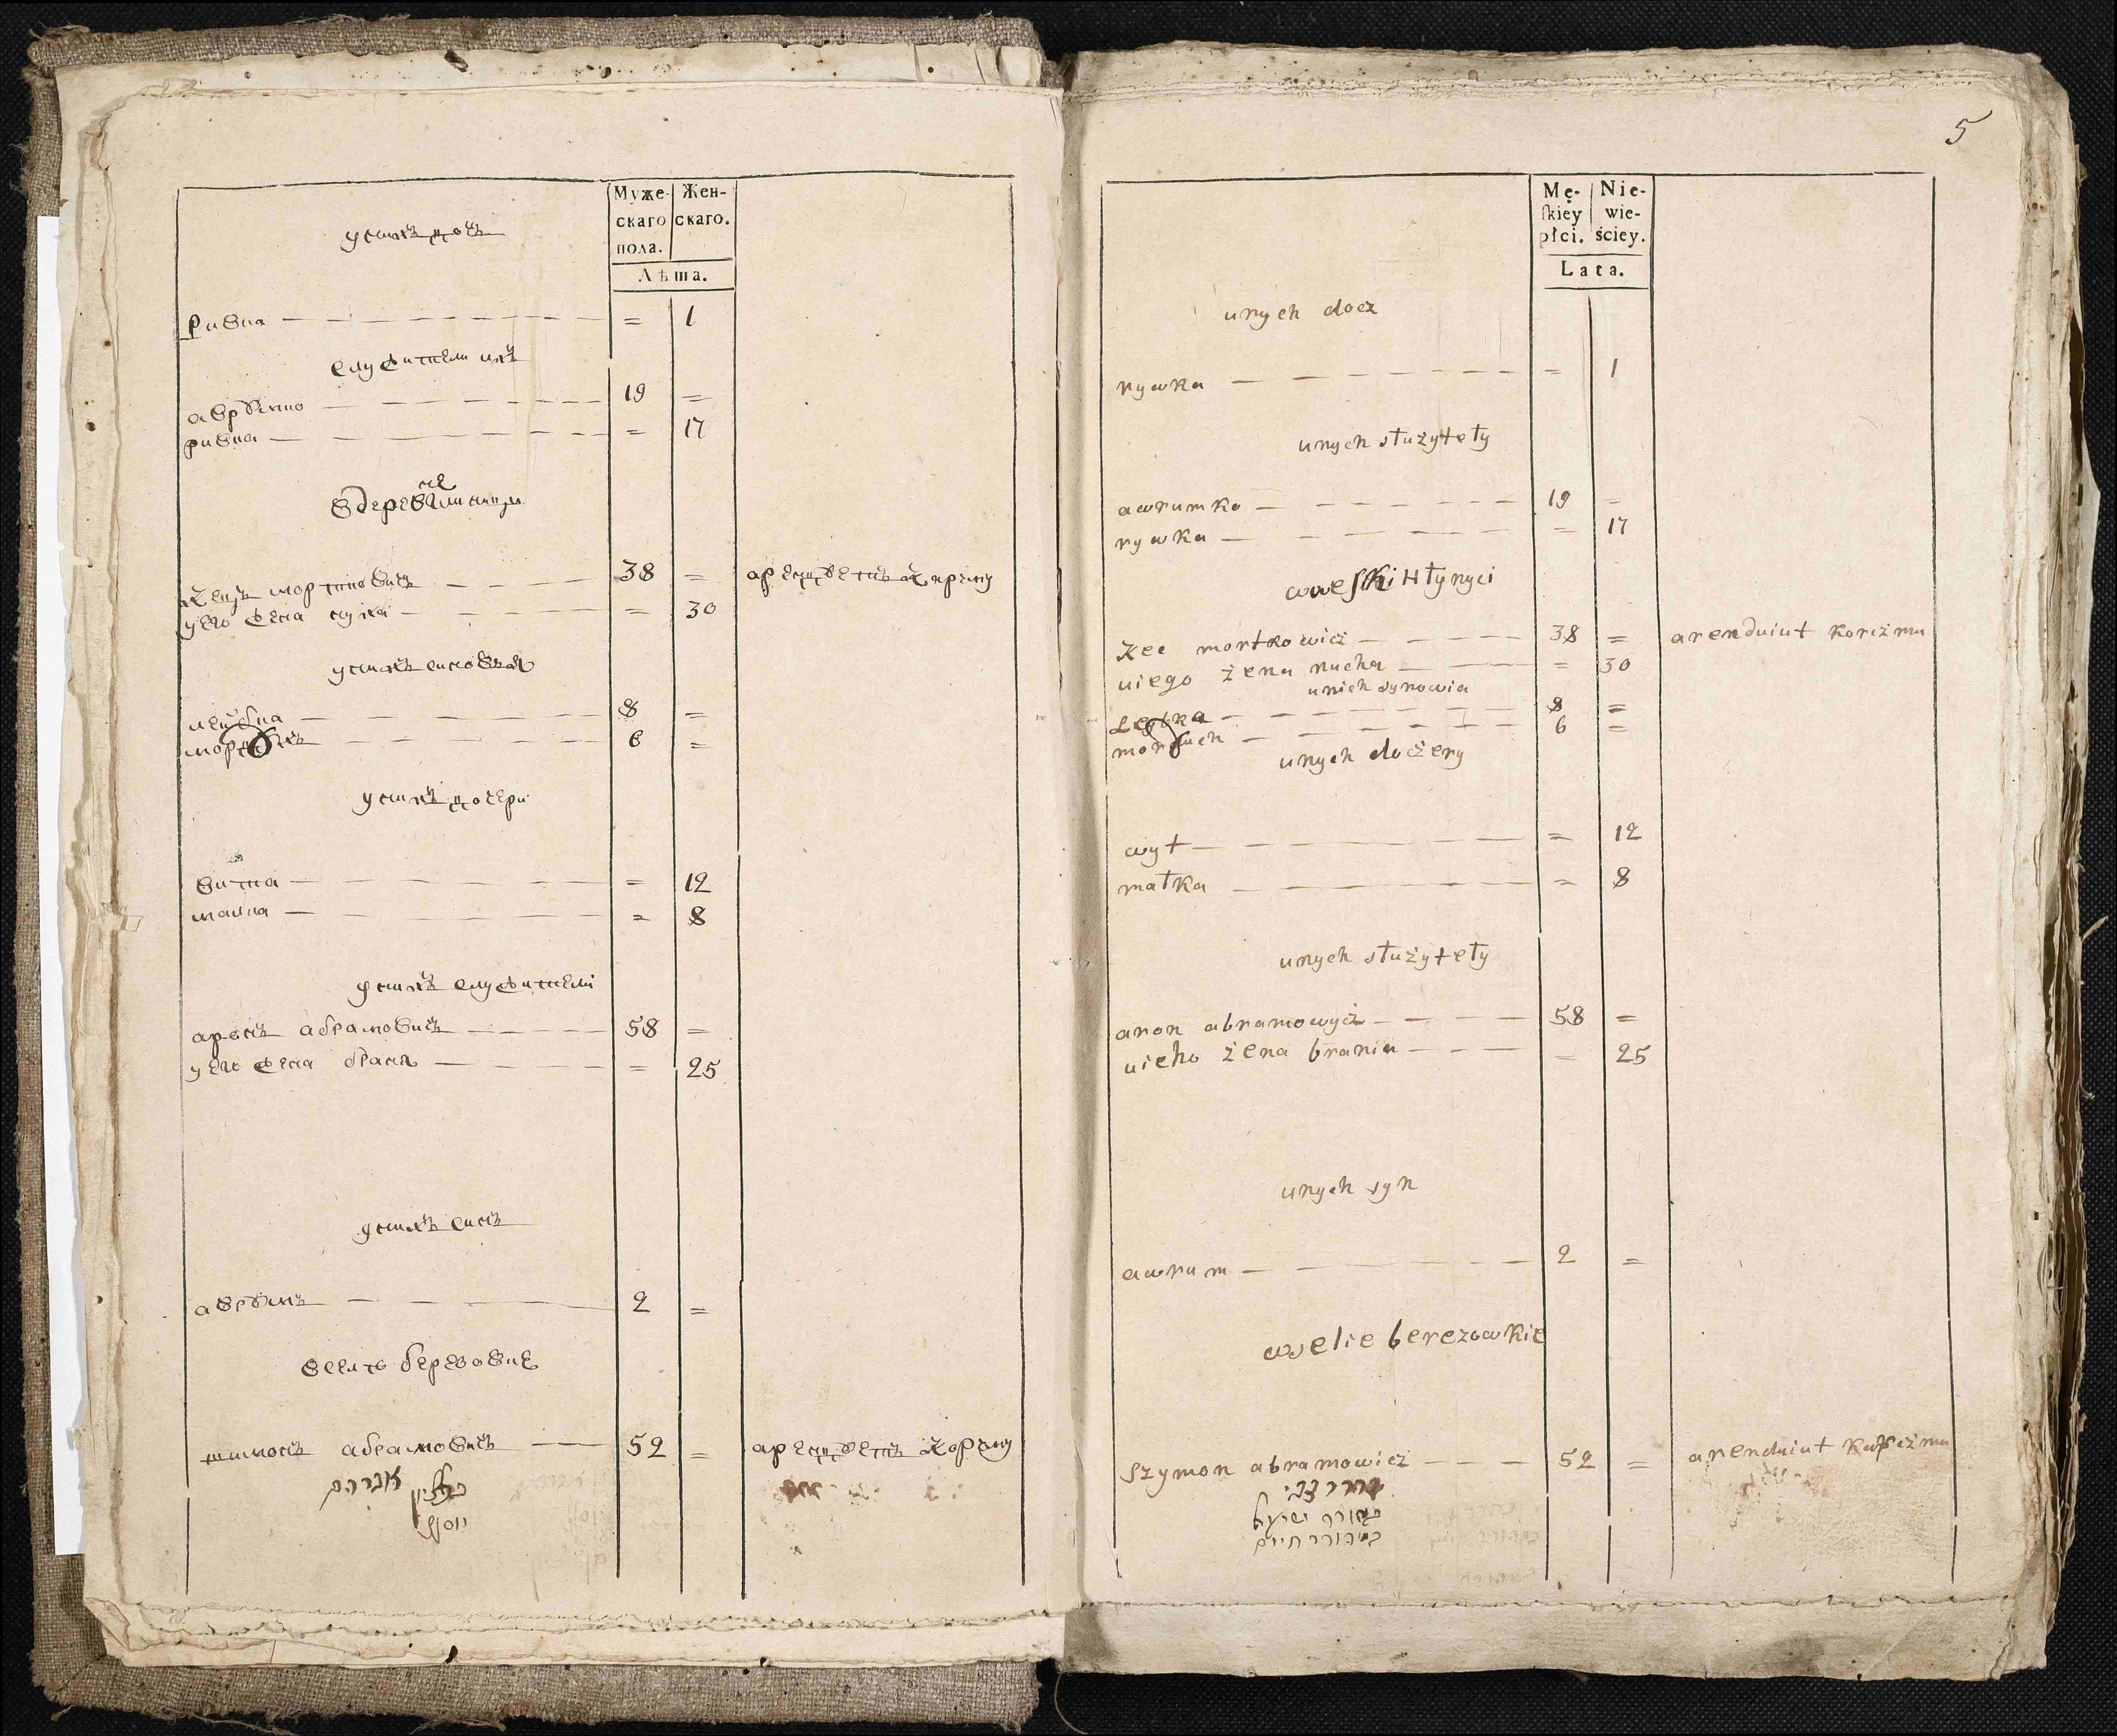 Муже-
скаго
пола.
Жен-
скаго.
Лѣта.
унихъ доч
ривка — 1
служители ихъ
аврумко — 19 =
ривка — = 17
38 =
его жена нуха — = 30
унихъ синовья
лейбка — 8 =
6 =
унихъ дочери
витка — = 12
малка — = 8
унихъ служители
аронъ абрамовичъ — 58 =
его жена браня — = 25
унихъ синъ
аврумъ — 2 =
вселѣ березовке
шимонъ абрамовичъ — 52 = арендуетъ корчму
אברהם
יוסף
5
Mę-
ſkiey
płci.
Nie-
wie-
ściey.
Lata.
unych docz
rywka — = 1
unych służyteły
awrumko — 19 =
rywka — = 17
wweſki Hłynyci
Kec mortkowicz — 38 = arenduiut korczmu
uiego żena nucha — = 30
unich synowia
Leybka — 8 =
6 =
unych doczery
wyt — = 12
małka — = 8
unych służyteły
aron abramowycz — 58 =
uieho żena brania — = 25
unych syn
awrum — 2 =
wselie berezowkie
Szymon abramowicz — 52 = arenduiut korczmu